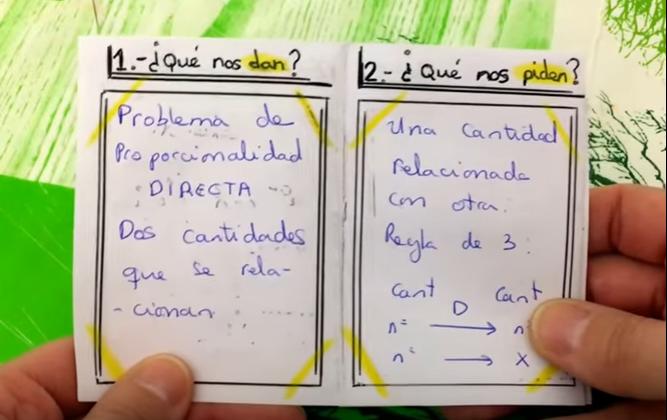 1.-¿Qué nos dan?
Problema de
Proporcionalidad
DIRECTA
Dos cantidades
que se rela-
-cionan
2.-¿Qué nos piden?
Una cantidad
relacionada
con otra.
Regla de 3:
Cant D Cant
nº → nº
nº → X